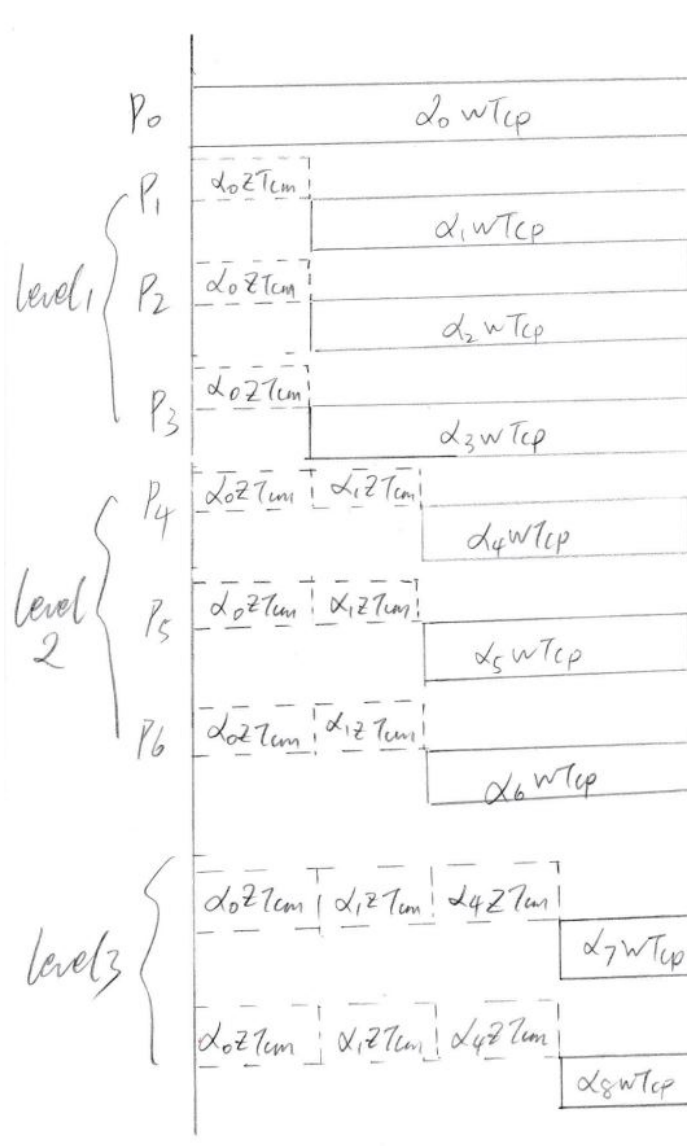 P₀ α₀wTcp
P₁ α₀zTcm
α₁wTcp
Level₁ P₂ α₀zTcm
α₂wTcp
P₃ α₀zTcm
α₃wTcp
P₄ α₀zTcm α₁zTcm
α₄wTcp
Level 2
P₅ α₀zTcm α₁zTcm
α₅wTcp
P₆ α₀zTcm α₁zTcm
α₆wTcp
Level₃
α₀zTcm α₁zTcm α₄zTcm
α₇wTcp
α₀zTcm α₁zTcm α₄zTcm
α₈wTcp